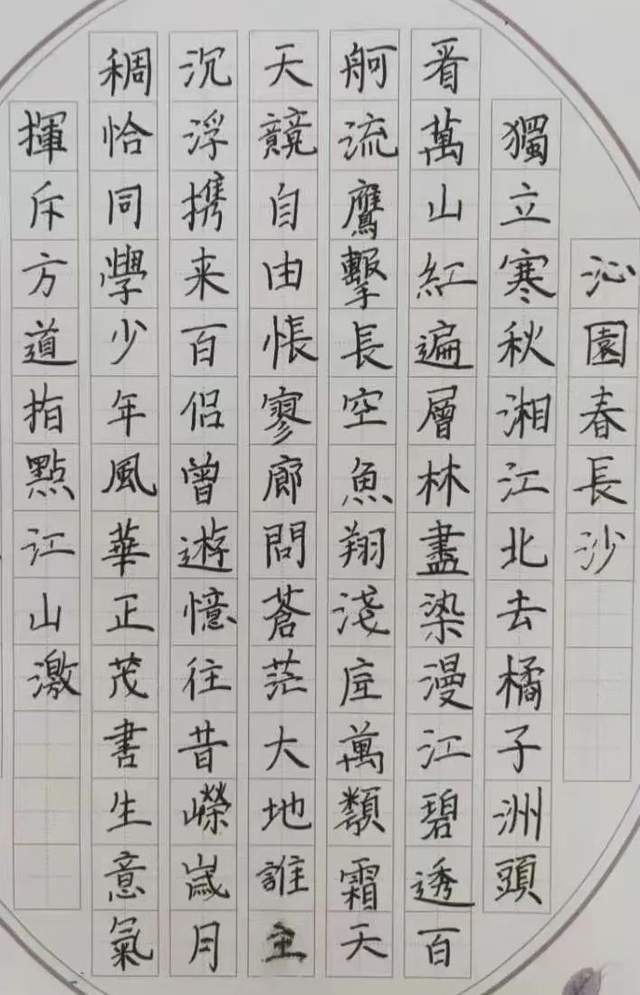 沁園春長沙
獨立寒秋湘江北去橘子洲頭
看萬山紅遍層林盡染漫江碧透百
舸流鷹擊長空魚翔淺底萬類霜天
天競自由悵寥廊問蒼茫大地誰主
沉浮携来百侣曾遊憶往昔嶸歲月
稠恰同學少年風華正茂書生意氣
揮斥方道指點江山激